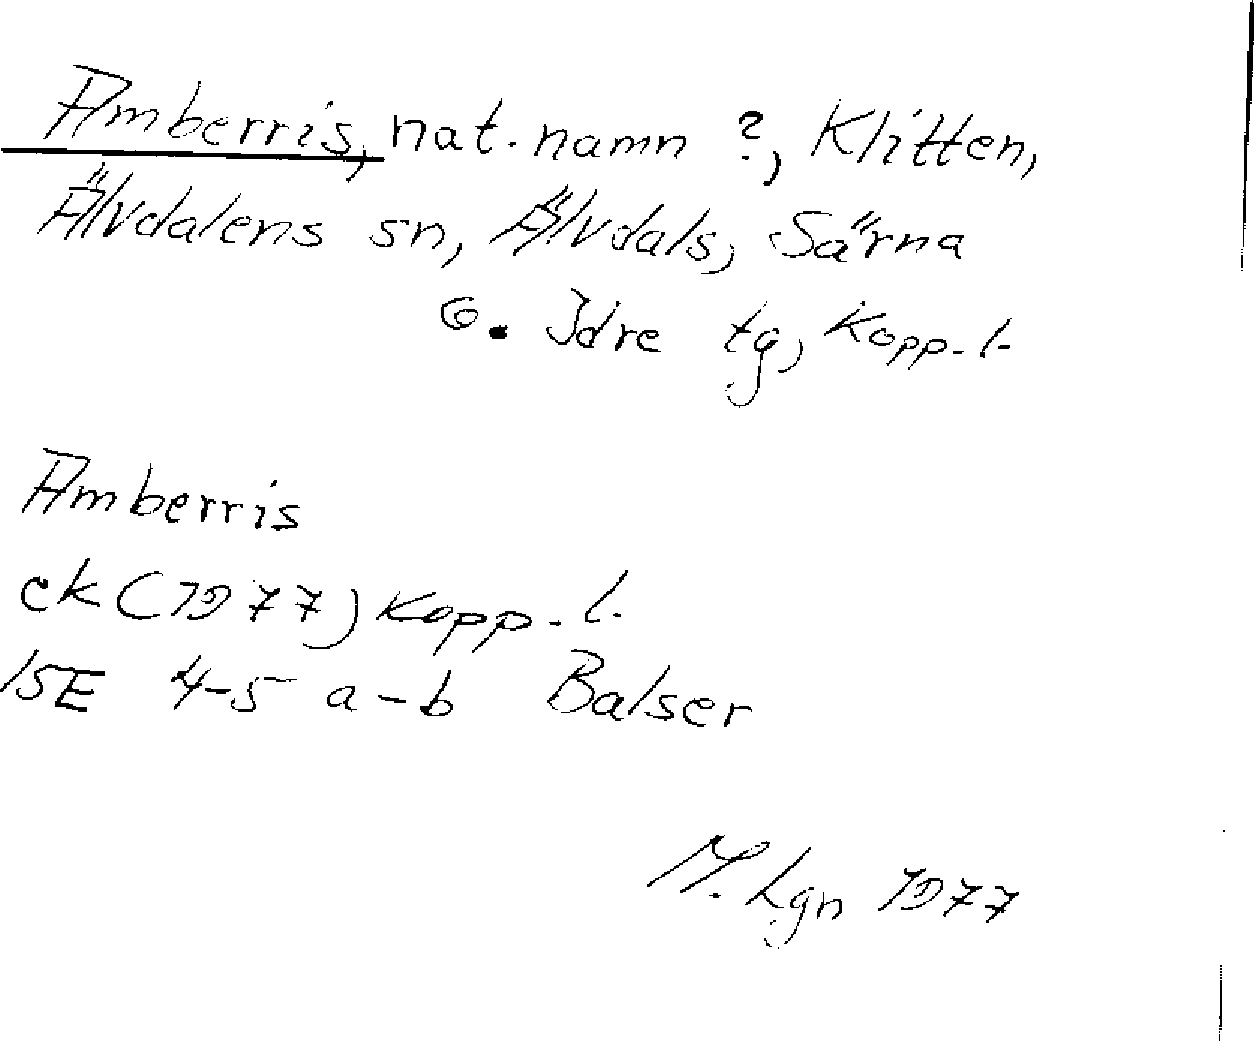 Amberris, nat. namn ?, Klitten,
Älvdalens sn, Älvdals, Särna
o. Idre tg, Kopp. l.
Amberris
ek (1977) Kopp. l.
15E 4-5 a-b Balser
M. Lgn 1977